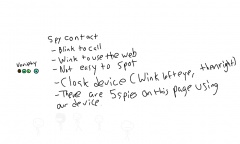 Spy contact
- Blink to call
- Wink to use the web
- Not easy to spot
- Cloak device (Wink left eye, then right)
- There are 5 spies on this page using our device